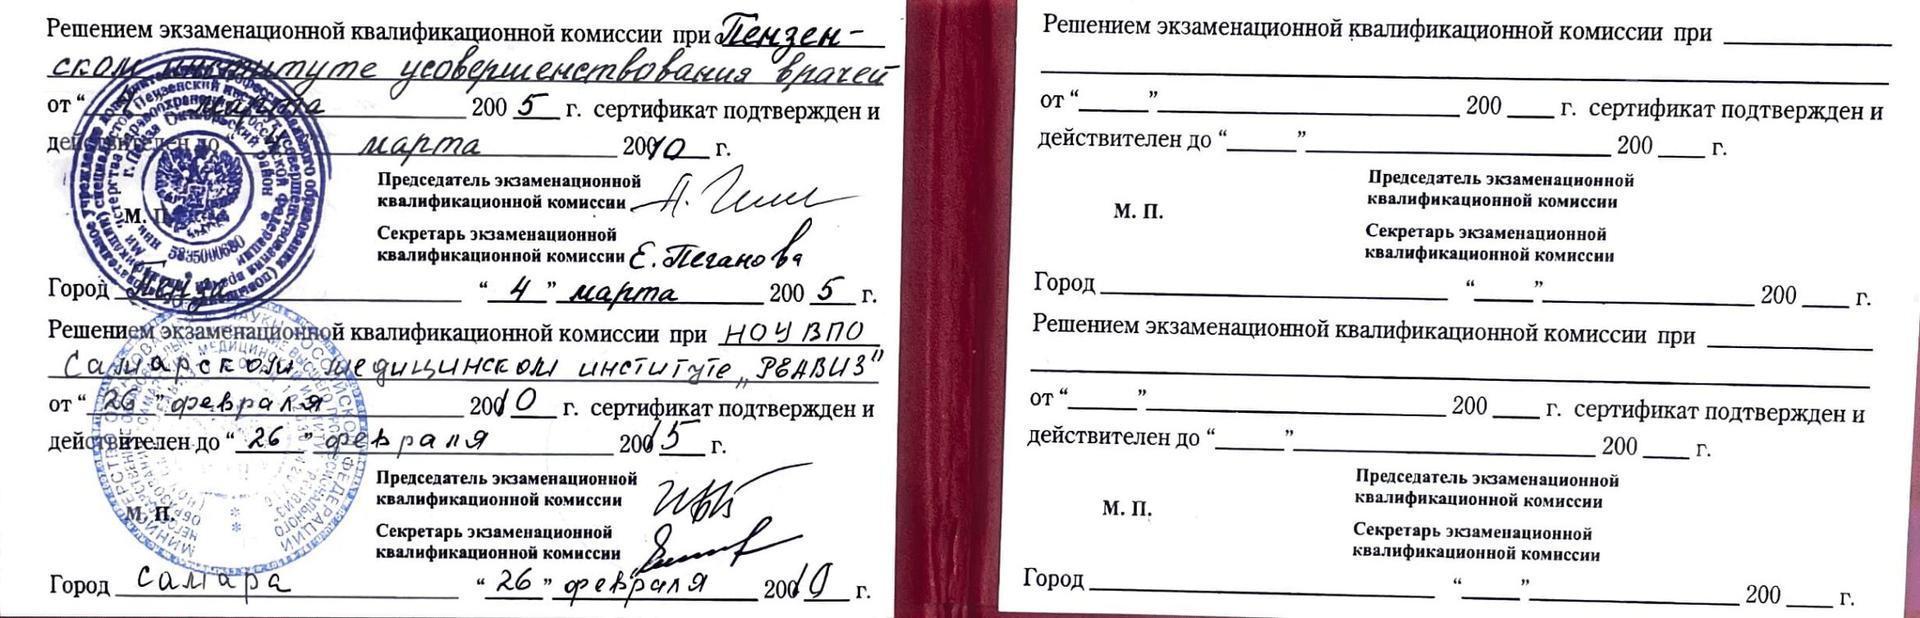 Решением экзаменационной квалификационной комиссии при Пензен-
ском институте усовершенствования врачей
от “ марта 2005 г. сертификат подтвержден и
действителен до марта 20010 г.
Председатель экзаменационной
квалификационной комиссии
М. П.
Секретарь экзаменационной
квалификационной комиссии Е. Пеганова
Город Пенза “ 4 ” марта 2005 г.
5835000680
Решением экзаменационной квалификационной комиссии при НОУ ВПО
Самарском медицинском институте „РЕАВИЗ”
от “ 26 ” февраля 20010 г. сертификат подтвержден и
действителен до “ 26 ” февраля 20015 г.
Председатель экзаменационной
квалификационной комиссии
М. П.
Секретарь экзаменационной
квалификационной комиссии
Город Самара “ 26 ” февраля 20010 г.
Решением экзаменационной квалификационной комиссии при
от “ ” 200 г. сертификат подтвержден и
действителен до “ ” 200 г.
Председатель экзаменационной
квалификационной комиссии
М. П.
Секретарь экзаменационной
квалификационной комиссии
Город “ ” 200 г.
Решением экзаменационной квалификационной комиссии при
от “ ” 200 г. сертификат подтвержден и
действителен до “ ” 200 г.
Председатель экзаменационной
квалификационной комиссии
М. П.
Секретарь экзаменационной
квалификационной комиссии
Город “ ” 200 г.